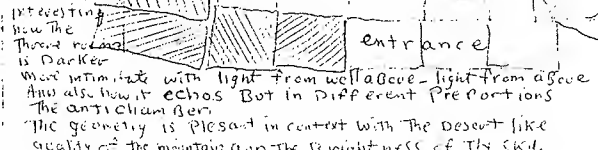 Interesting
how The
Throne room
is Darker
entrance
More intimate with light from well above - light from above
And also how it echos But in Different Preportions
The antichamber.
The geometry is Plesant in context with The Desert like
quality of the mountain and The